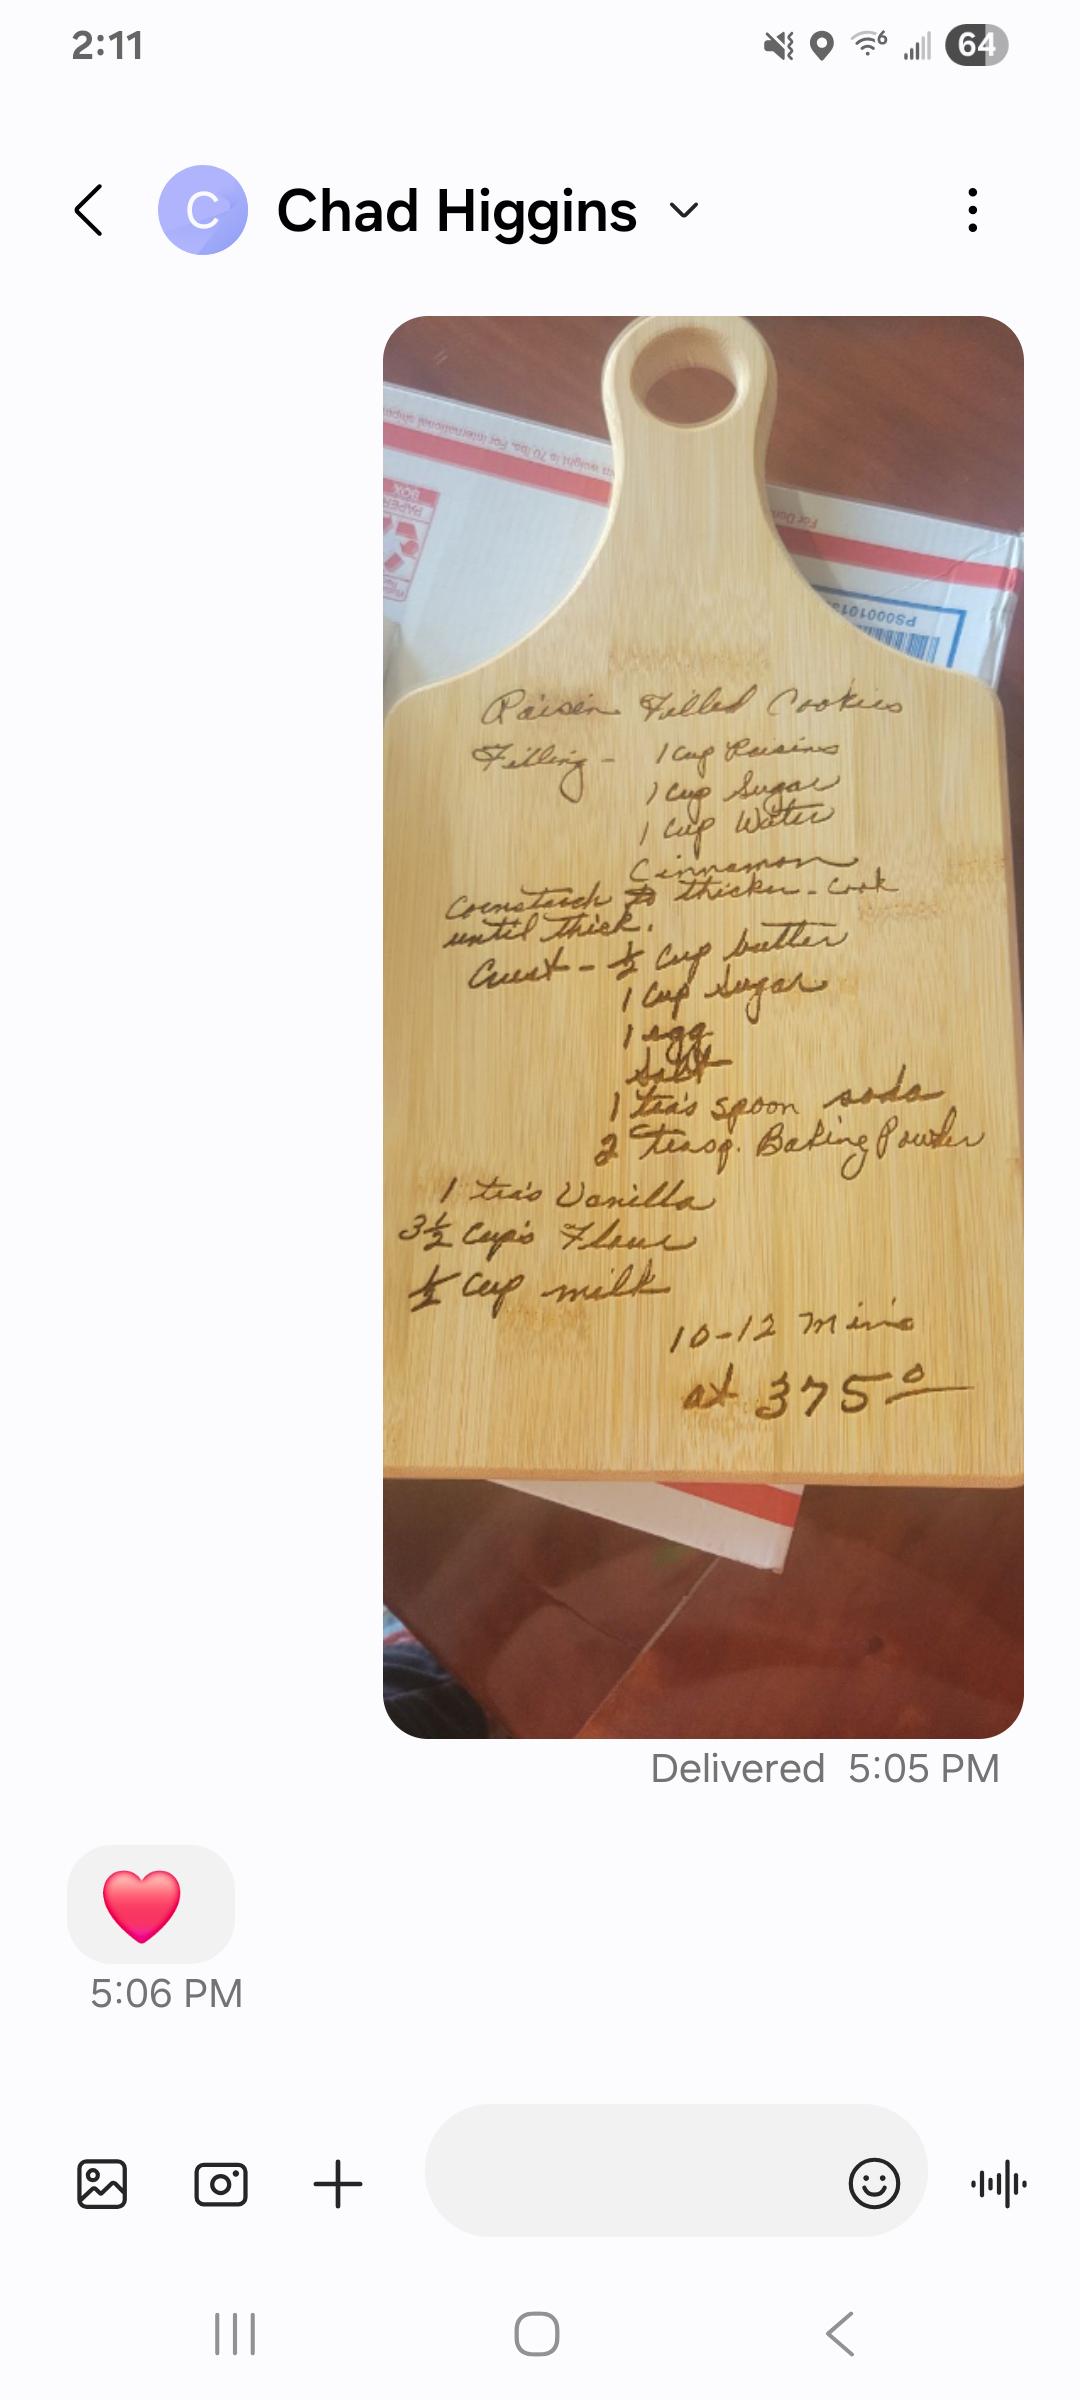 2:11
6
64
C
Chad Higgins
For International ship
weight is 70 lbs.
BOX
PAPER
For Dom
PS000101
Raisin Filled Cookies
Filling - 1 Cup Raisins
1 Cup Sugar
1 Cup Water
Cinnamon
Cornstarch to thicken - Cook
until thick.
Crust - 1/2 Cup butter
1 Cup Sugar
1 egg
Salt
1 tea's spoon soda
2 Teasp. Baking Powder
1 tea's Vanilla
3 1/2 Cup's Flour
1/2 Cup milk
10-12 Min's
at 375°
Delivered 5:05 PM
5:06 PM